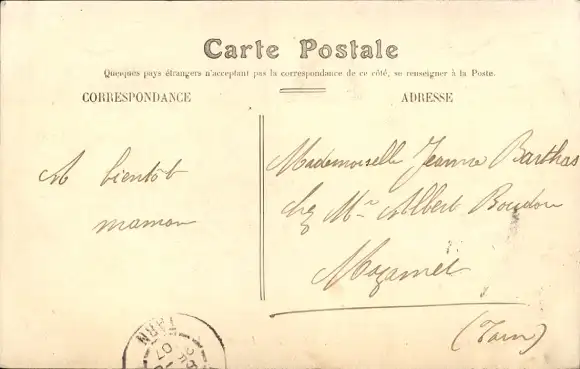 Carte Postale
Quelques pays étrangers n'acceptant pas la correspondance de ce côté, se renseigner à la Poste.
CORRESPONDANCE
ADRESSE
A bientôt
maman
Mademoiselle Jeanne Barthas
chez Mr Albert Boudou
Mazamet
(Tarn)
TARN
07